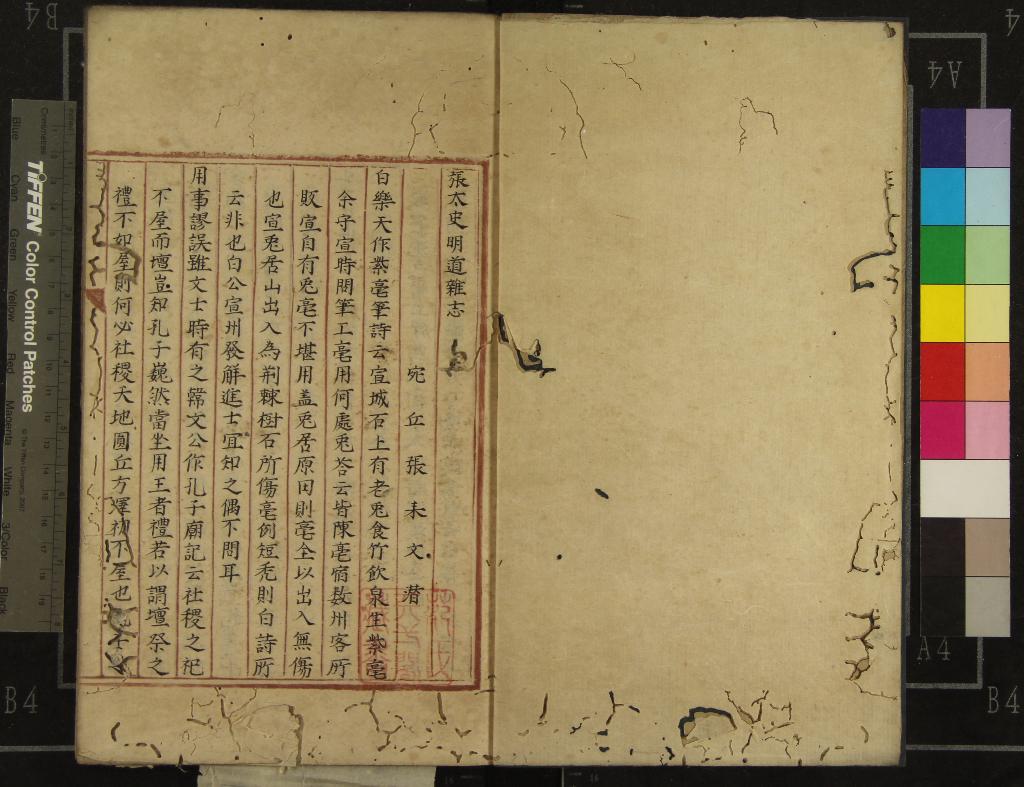 張太史明道雜志
宛丘張耒文潛
白樂天作紫毫筆詩云宣城石上有老兎食竹飲泉生紫毫
余守宣時問筆工毫用何處兎荅云皆陳亳宿數州客所
販宣自有兎毫不堪用盖兎居原田則毫全以出入無傷
也宣兎居山出入為荆棘樹石所傷毫例短禿則白詩所
云非也白公宣州發解進士宜知之偶不問耳
用事謬誤雖文士時有之韓文公作孔子廟記云社稷之祀
不屋而壇豈如孔子巍然當坐用王者禮若以謂壇祭之
禮不如屋則何必社稷天地圓丘方澤初不屋也
B4
4
A4
TIFFEN Color Control Patches
© The Tiffen Company, 2007
Centimetres
Blue
Cyan
Green
Yellow
Red
Magenta
White
3/Color
Black
A4
B4
B4